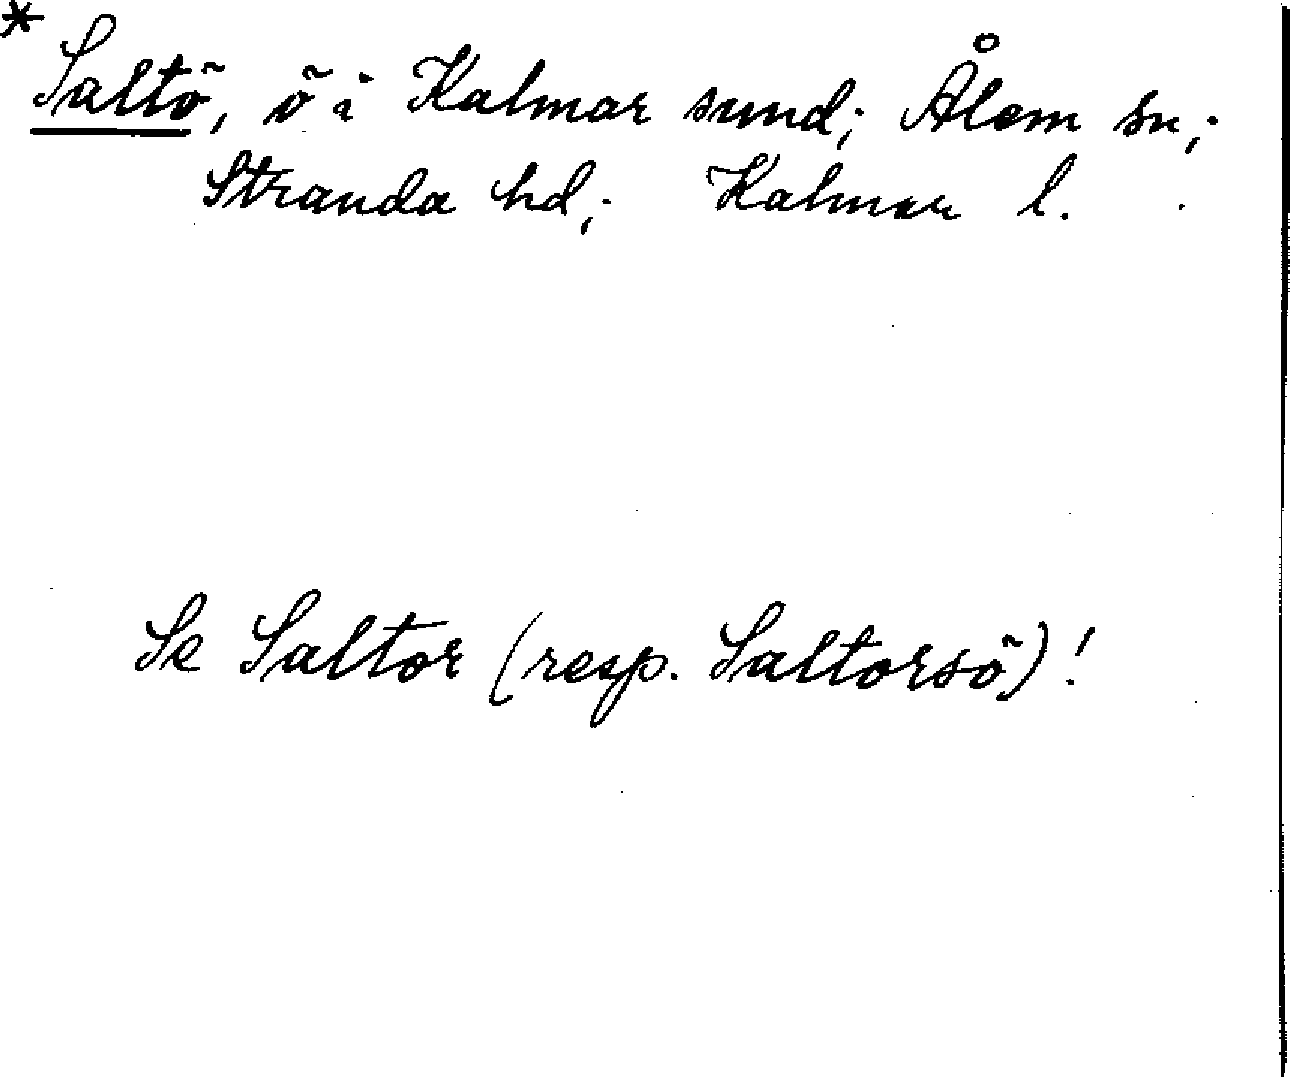 * Saltö, ö i Kalmar sund; Ålem sn;
Stranda hd; Kalmar l.
Se Saltor (resp. Saltorsö)!